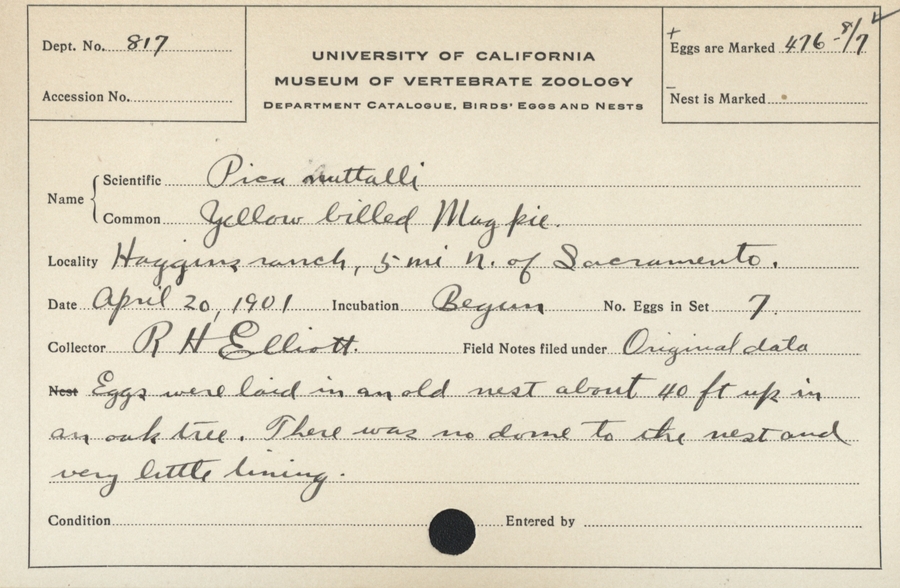 Dept. No. 817
Accession No.
UNIVERSITY OF CALIFORNIA
MUSEUM OF VERTEBRATE ZOOLOGY
DEPARTMENT CATALOGUE, BIRDS' EGGS AND NESTS
+
Eggs are Marked 476 - 8/7
–
Nest is Marked
Name
Scientific Pica nuttalli
Common Yellow billed Magpie.
Locality Haggins ranch, 5 mi N. of Sacramento.
Date April 20, 1901 Incubation Begun No. Eggs in Set 7.
Collector R H Elliott. Field Notes filed under Original data
Nest Eggs were laid in an old nest about 40 ft up in
an oak tree. There was no dome to the nest and
very little lining.
Condition Entered by